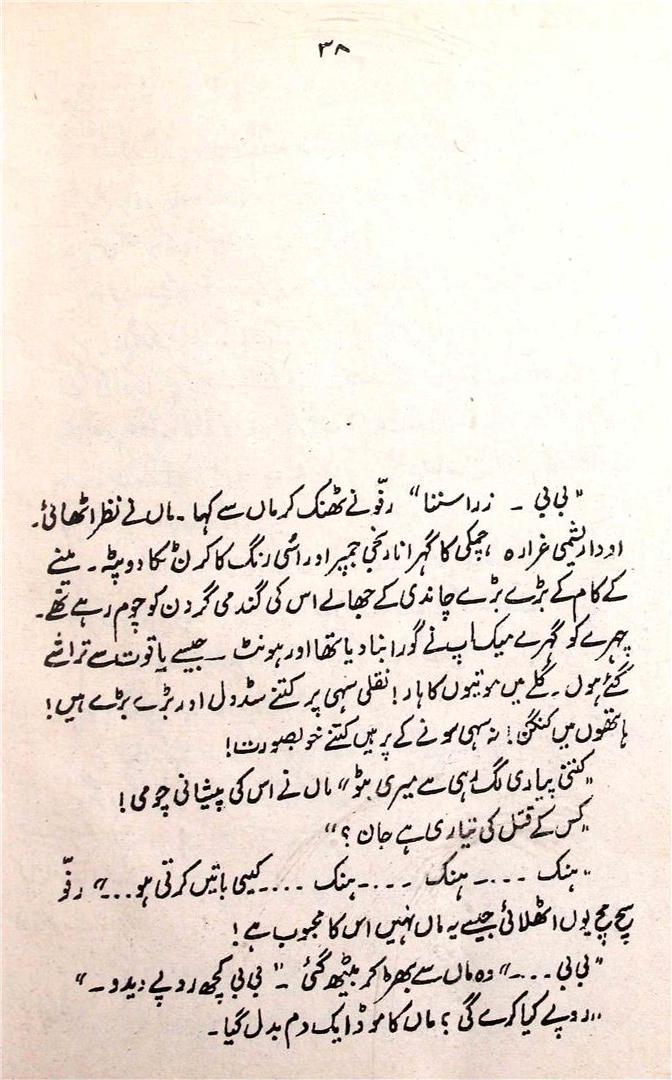 ۳۸
"بی بی ۔ ذرا سننا" رفّو نے ٹھنک کر ماں سے کہا ۔ ماں نے نظر اٹھائی۔
اودا ریشمی غرارہ ، چمکی کا گہرا نارنجی جمپر اور اسُی رنگ کا کرن ٹکا دوپٹہ ۔ مینے
کے کام کے بڑے بڑے چاندی کے جھالے اس کی گندمی گردن کو چوم رہے تھے۔
چہرے کو گہرے میک اپ نے گورا بنا دیا تھا اور ہونٹ ۔ جیسے یاقوت سے تراشے
گئے ہوں ۔ گلے میں موتیوں کا ہار! نقلی سہی پر کتنے سڈول اور بڑے بڑے ہیں!
ہاتھوں میں کنگن! نہ سہی سونے کے پر ہیں کتنے خوبصورت!
"کتنی پیاری لگ رہی ہے میری بنّو" ماں نے اس کی پیشانی چومی!
"کس کے قتل کی تیاری ہے جان ؟"
"ہنک ...۔ ہنک ...۔ ہنک ....۔ کیسی باتیں کرتی ہو...۔" رفّو
سچ مچ یوں اٹھلائی جیسے یہ ماں نہیں اس کا محبوب ہے!
"بی بی ...۔" وہ ماں سے بھڑ کر بیٹھ گئی ۔ "بی بی کچھ روپے دیدو ۔"
"روپے کیا کرے گی ؟ ماں کا موڈ ایک دم بدل گیا ۔